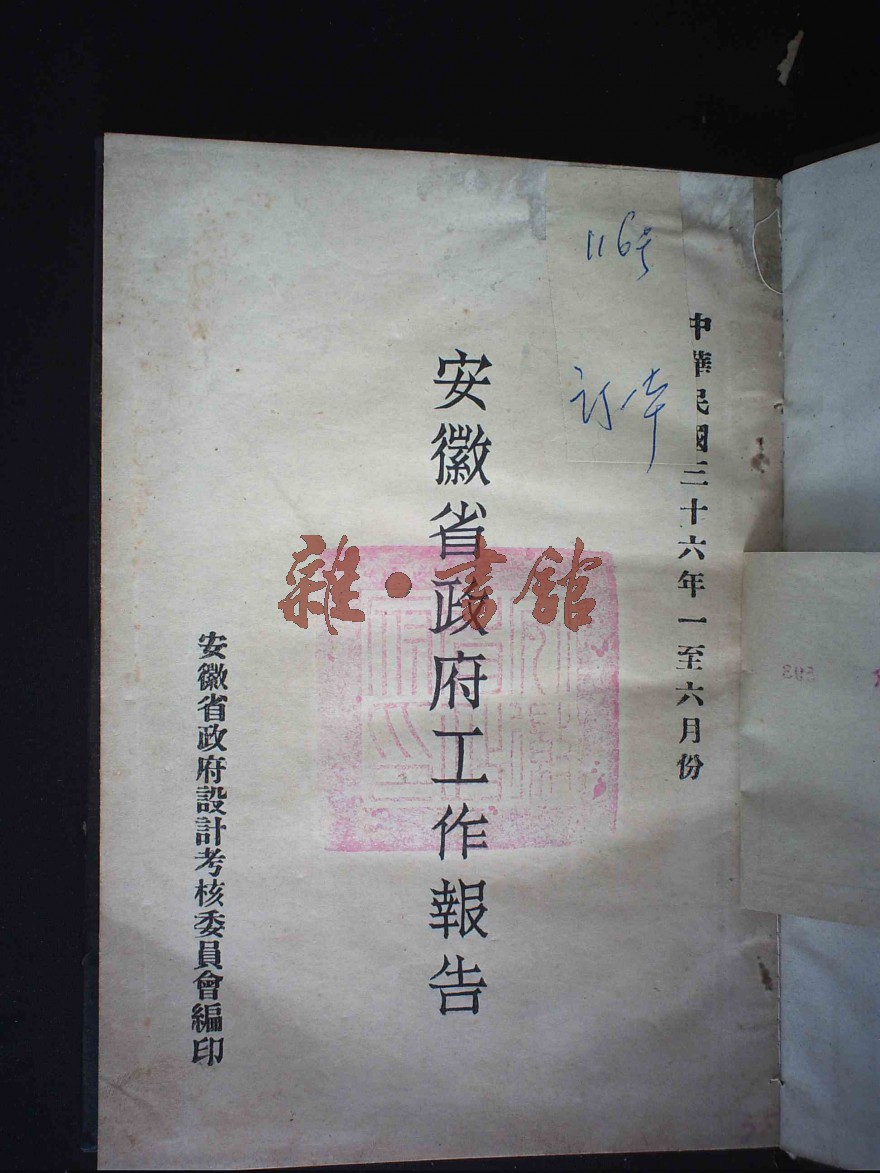 中華民國三十六年一至六月份
116号
訂本
安徽省政府工作報告
安徽省政府設計考核委員會編印
雜·書館